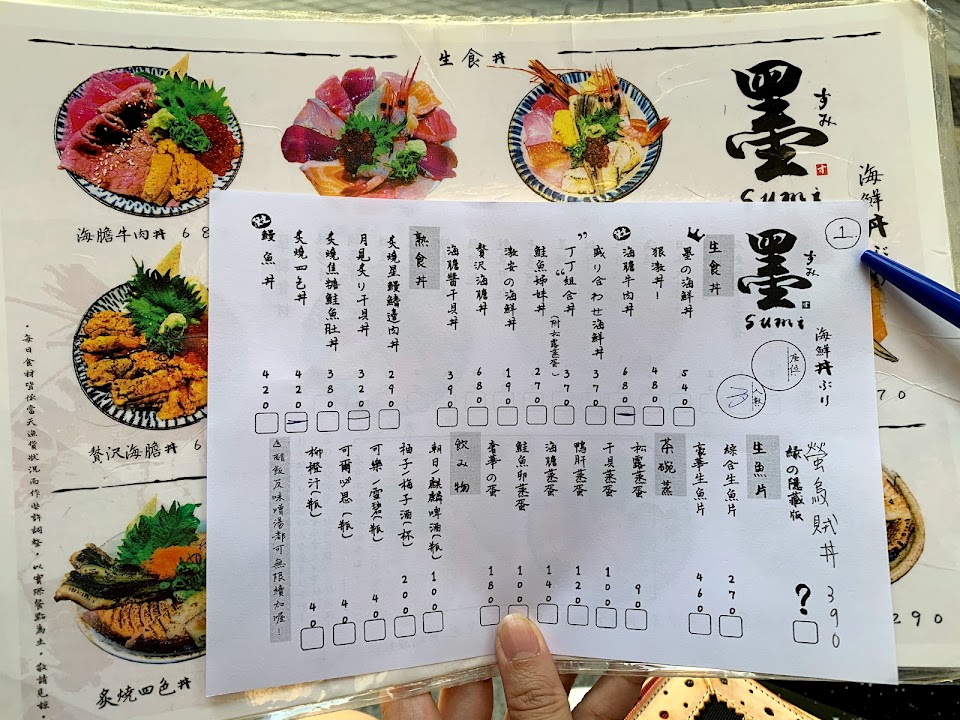 生食丼
墨
すみ
Sumi
海鮮丼ぶり
海膽牛肉丼 68
贅沢海膽丼 6
炙燒四色丼
・每日食材皆依當天漁貨狀況而作些許調整，以實際餐點為主，敬請見諒。
70
290
1
墨
すみ
Sumi
海鮮丼ぶり
座位
人數
生食丼
墨の海鮮丼 540
狠激丼！ 480
海膽牛肉丼 680
盛り合わせ海鮮丼 370
”丁丁“組合丼 370
（附松露蒸蛋）
鮭魚姊妹丼 270
激安の海鮮丼 190
贅沢海膽丼 680
海膽醬干貝丼 390
熟食丼
炙燒星鰻鰭邊肉丼 290
月見炙り干貝丼 320
炙燒焦糖鮭魚肚丼 380
炙燒四色丼 420
鰻魚丼 420
螢烏賊丼 390
緣の隱藏版 ?
生魚片
綜合生魚片 270
豪華生魚片 460
茶碗蒸
松露蒸蛋 90
干貝蒸蛋 100
鴨肝蒸蛋 120
海膽蒸蛋 140
鮭魚卵蒸蛋 100
奢華の蛋 180
飲み物
朝日/麒麟啤酒(瓶) 100
柚子/梅子酒(杯) 200
可樂/雪碧(瓶) 40
可爾必思(瓶) 40
柳橙汁(瓶) 40
△醋飯及味噌湯都可無限續加喔！